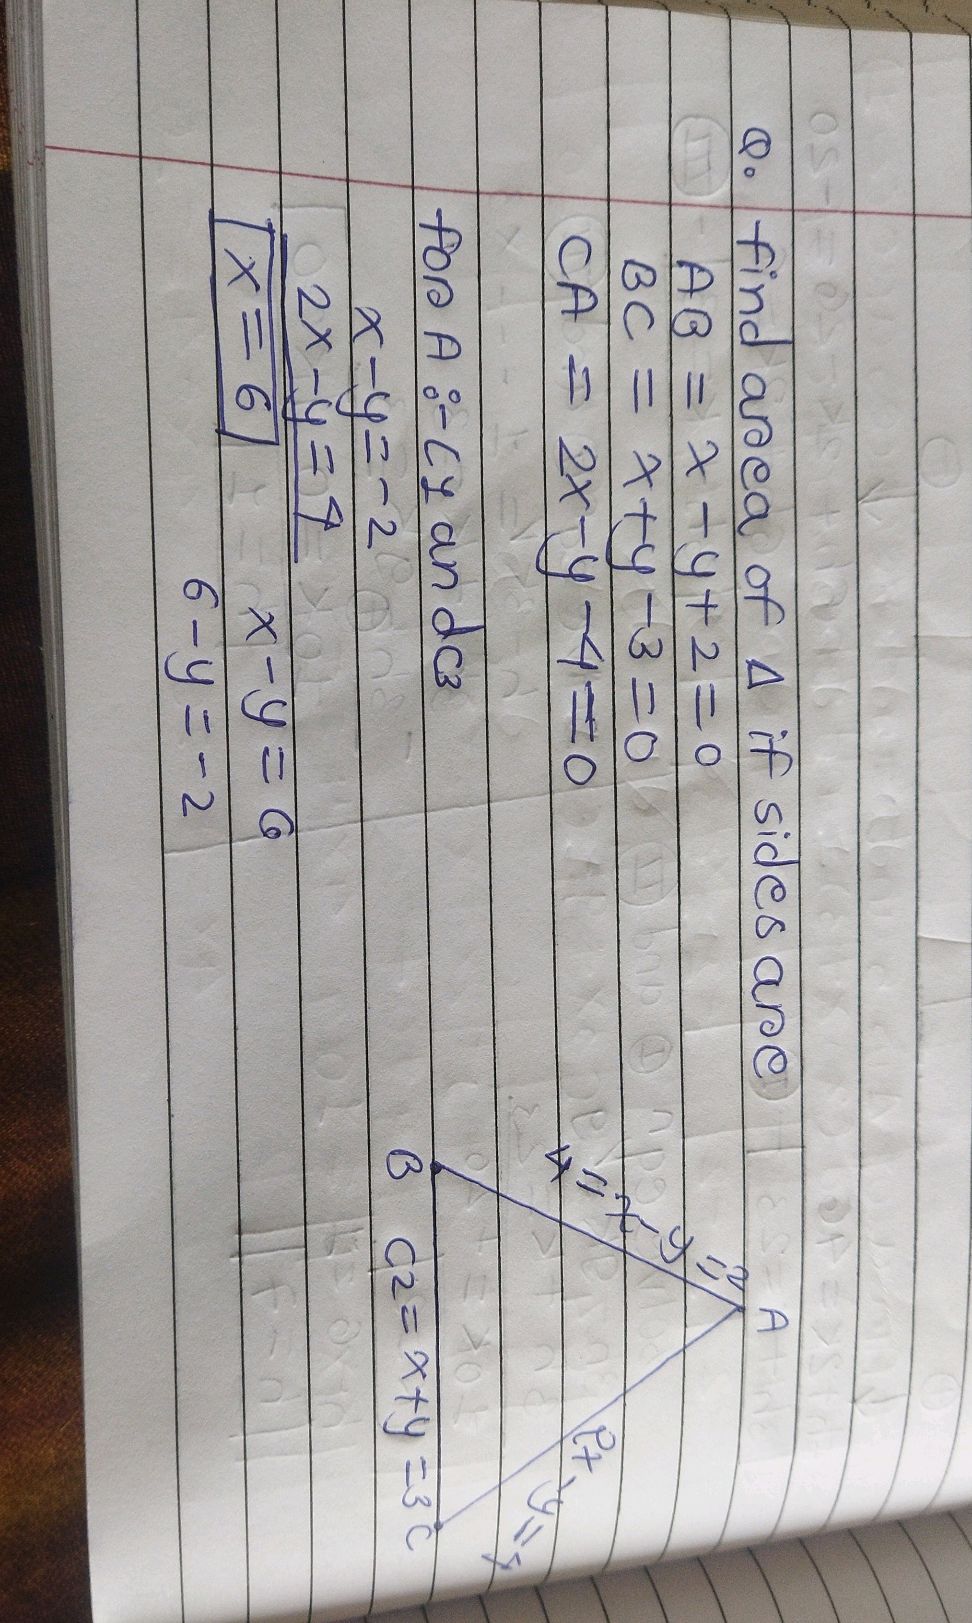 Q. find area of Δ if sides are
AB = x - y + 2 = 0
BC = x + y - 3 = 0
CA = 2x - y - 4 = 0
for A :- L1 and L3
x - y = -2
2x - y = 4
x = 6
x - y = 6
6 - y = -2
A
x - y = -2
2x - y = 4
B
L2 = x + y = 3
C